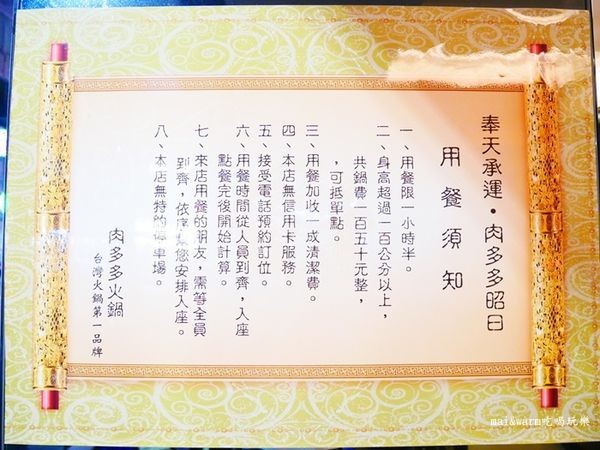 奉天承運·肉多多昭曰
用餐須知
一、用餐限一小時半。
二、身高超過一百公分以上，
共鍋費一百五十元整，
，可抵單點。
三、用餐加收一成清潔費。
四、本店無信用卡服務。
五、接受電話預約訂位。
六、用餐時間從人員到齊，入座
點餐完後開始計算。
七、來店用餐的朋友，需等全員
到齊，依序 您安排入座。
八、本店無特約停車場。
肉多多火鍋
台灣火鍋第一品牌
mai&warm吃喝玩樂